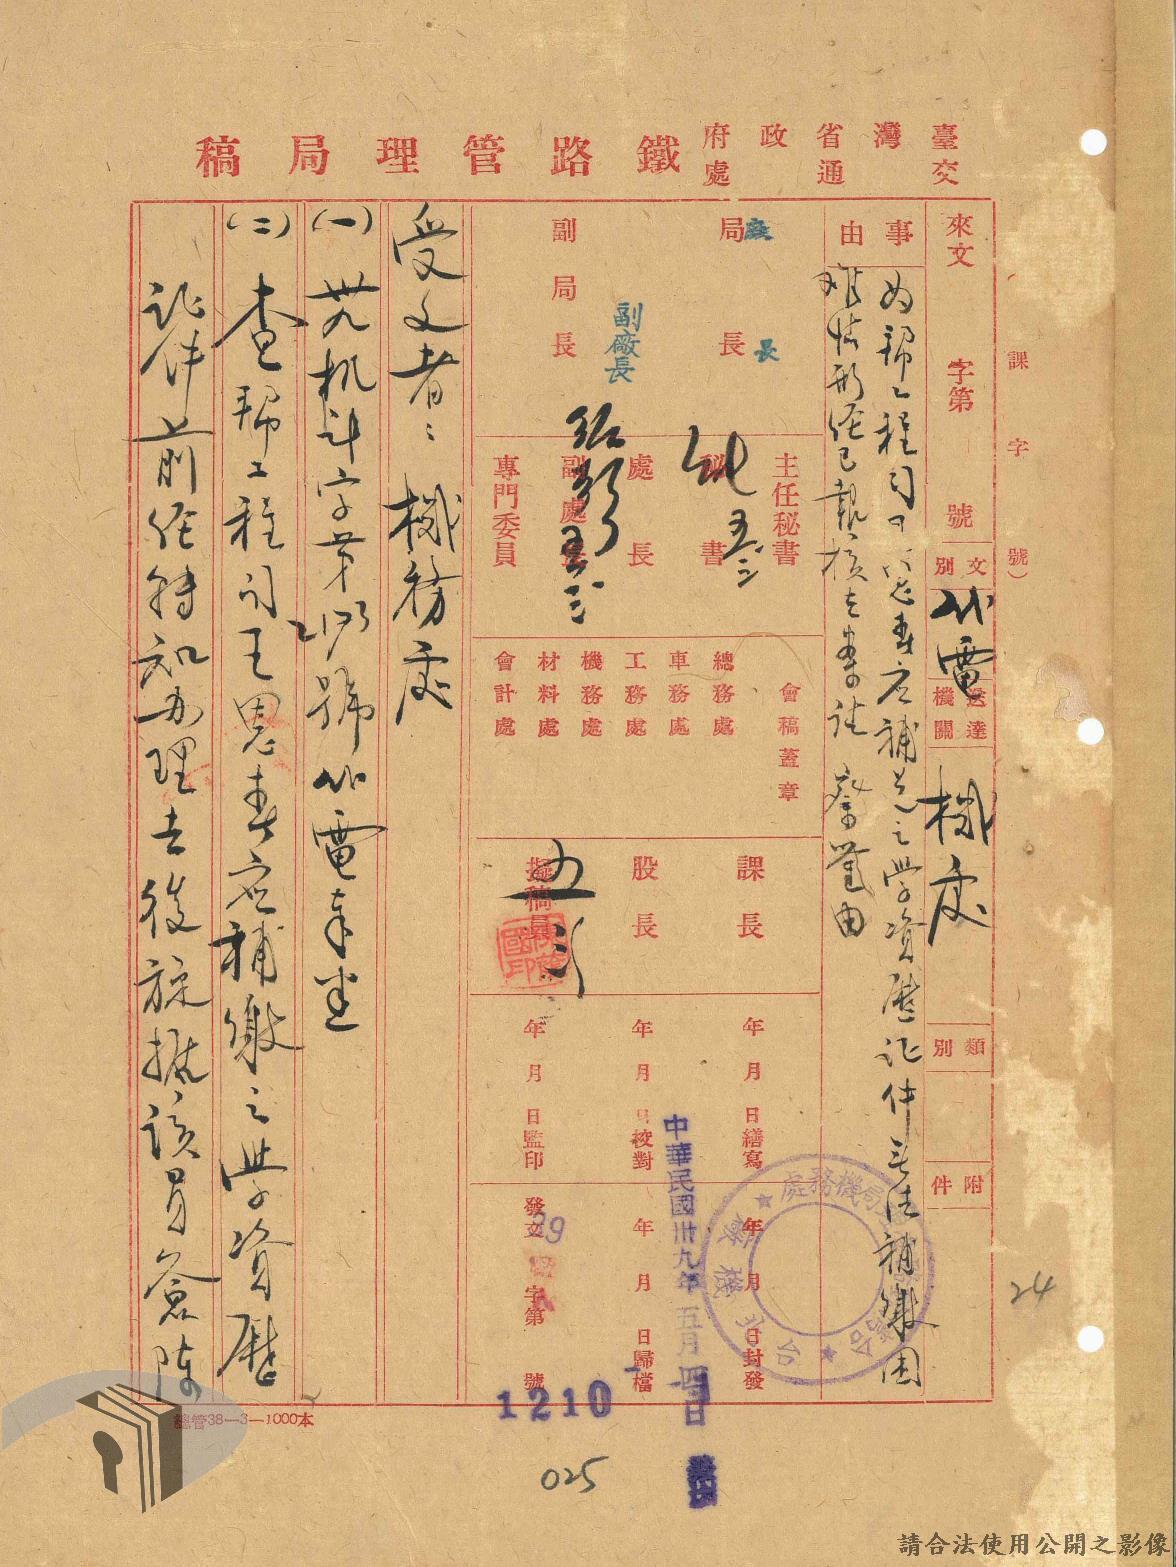 臺灣省政府
交通處
鐵路管理局稿
課 字 號）
來文 字第 號
文別 代電
送達機關 機務處
類別
附件
事由
為幫工程司王思春應補繳之學資歷證件無法補繳困
難情形經已報核在案請 察鑒由
局長
廠長
副局長
副廠長
主任秘書
秘書
處長
副處長
專門委員
會稿蓋章
總務處
車務處
工務處
機務處
材料處
會計處
課長
股長
擬稿員
年 月 日繕寫
年 月 日校對
年 月 日監印
年 月 日封發
年 月 日歸檔
發文 39 字第 號
1210
中華民國卅九年五月四日
受文者：機務處
（一）卅九机斗字第 號代電奉悉
（二）查幫工程司王思春應補繳之學資歷
証件前經轉知办理去後旋據該員簽陳
總管38—3—1000本
24
025
請合法使用公開之影像